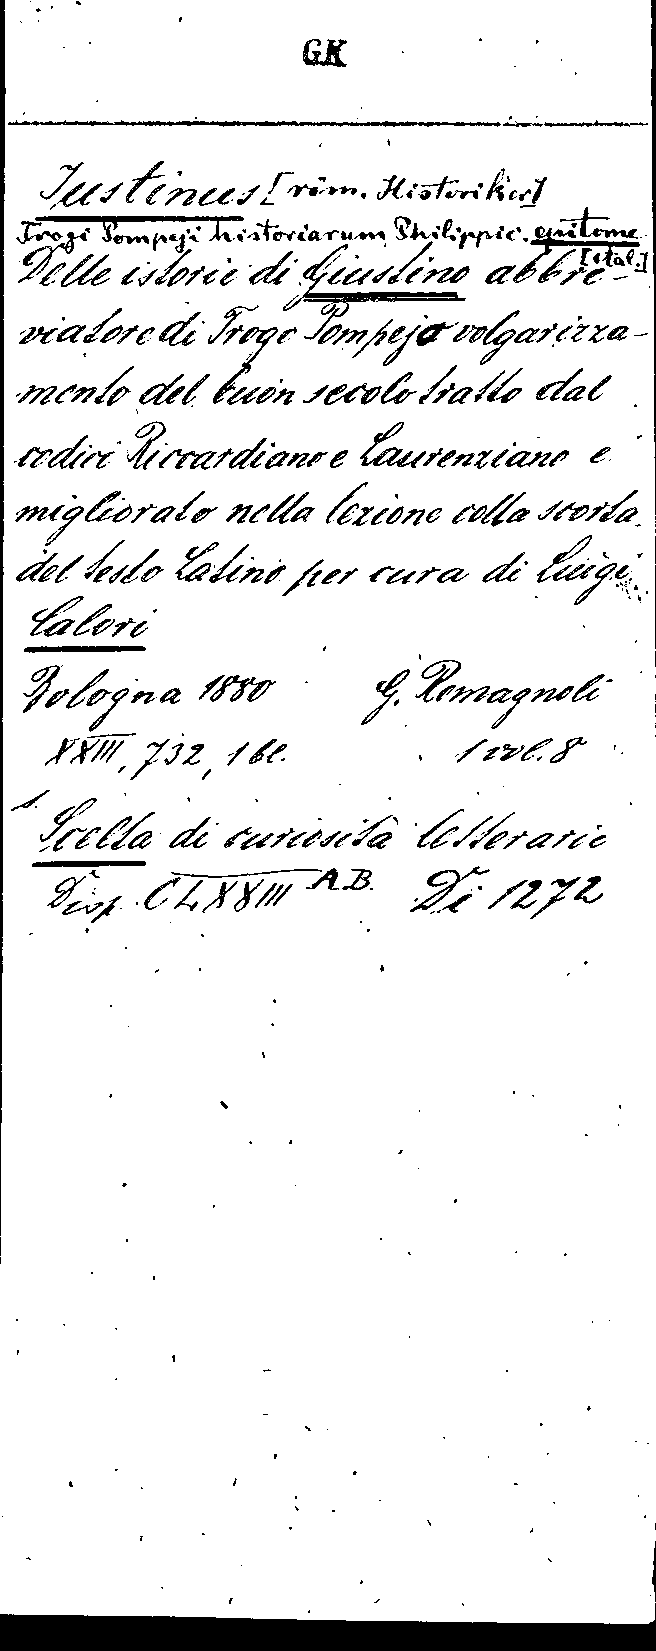 GK
Justinus [röm. Historiker]
Trogi Pompeji historiarum Philippic. epitome
[ital.]
Delle istorie di Giustino abbre-
viatore di Trogo Pompejo volgarizza-
mento del buon secolo tratto dai
codici Riccardiano e Laurenziano e
migliorato nella lezione colla scorta
del testo Latino per cura di Luigi
Calori
Bologna 1880 G. Romagnoli
XXIII, 732, 1 bl. 1 vol. 8
s. Scelta di curiosità letterarie
Disp. CLXXIII A.B. Di 1272